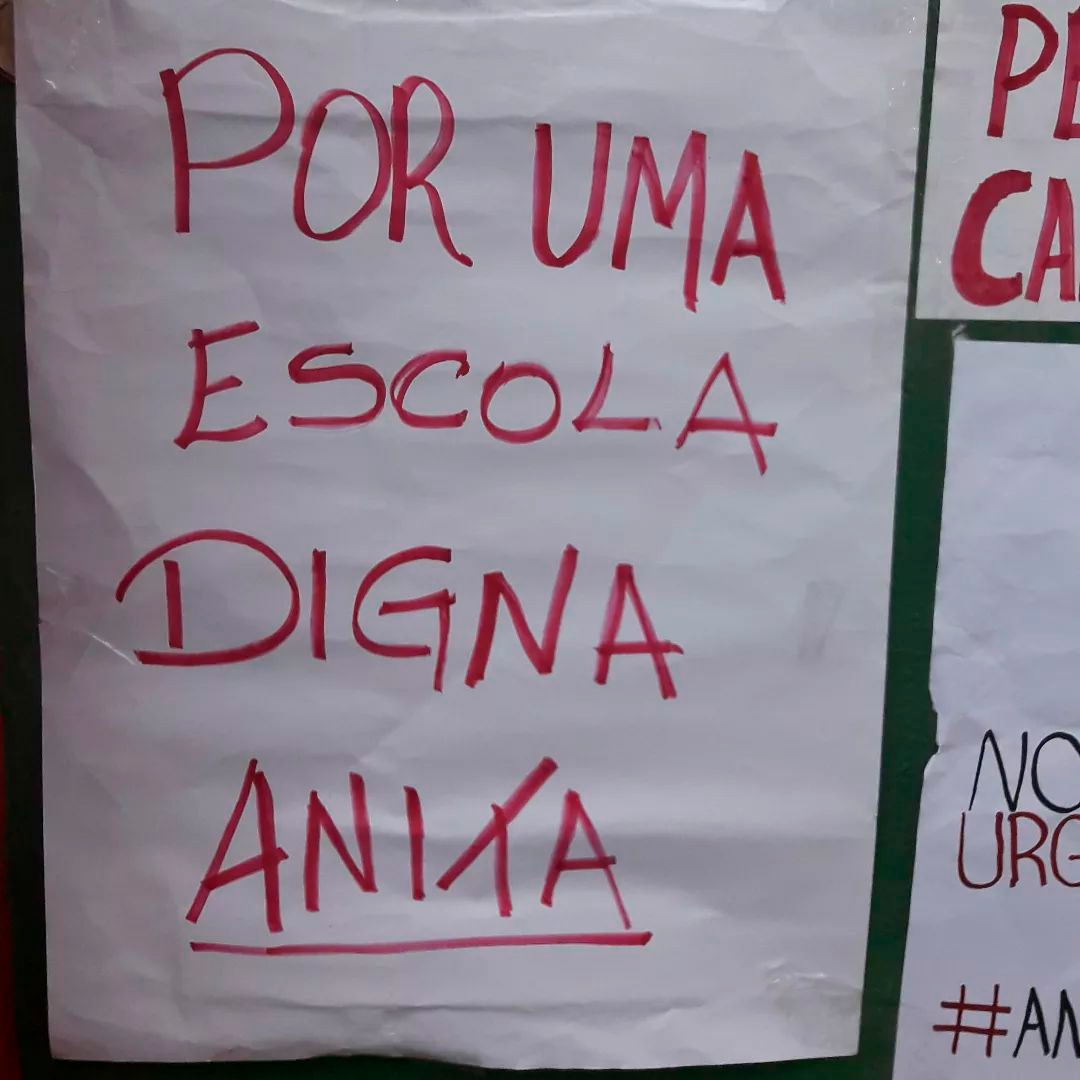 POR UMA
ESCOLA
DIGNA
ANIYA
PE
CA
NO
URG
#AN